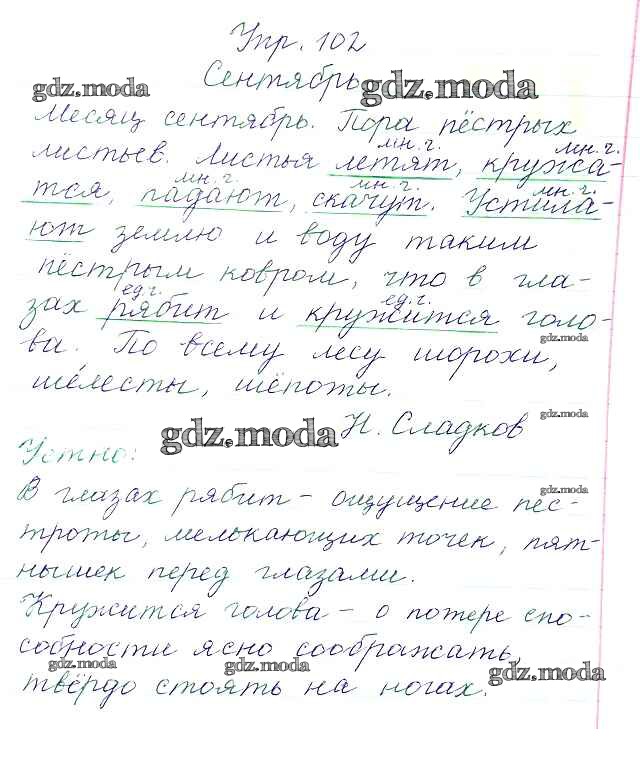 Упр. 102
gdz.moda
Сентябрь
gdz.moda
Месяц сентябрь. Пора пёстрых
мн.ч. мн.ч.
листьев. Листья летят, кружа-
мн.ч. мн.ч. мн.ч.
тся, падают, скачут. Устила-
ют землю и воду таким
пёстрым ковром, что в гла-
ед.ч. ед.ч.
зах рябит и кружится голо-
gdz.moda
ва. По всему лесу шорохи,
шелесты, шёпоты.
gdz.moda
gdz.moda
Н. Сладков
Устно:
gdz.moda
В глазах рябит – ощущение пёс-
троты, мелькающих точек, пят-
нышек перед глазами.
Кружится голова – о потере спо-
собности ясно соображать,
gdz.moda
gdz.moda
gdz.moda
твёрдо стоять на ногах.